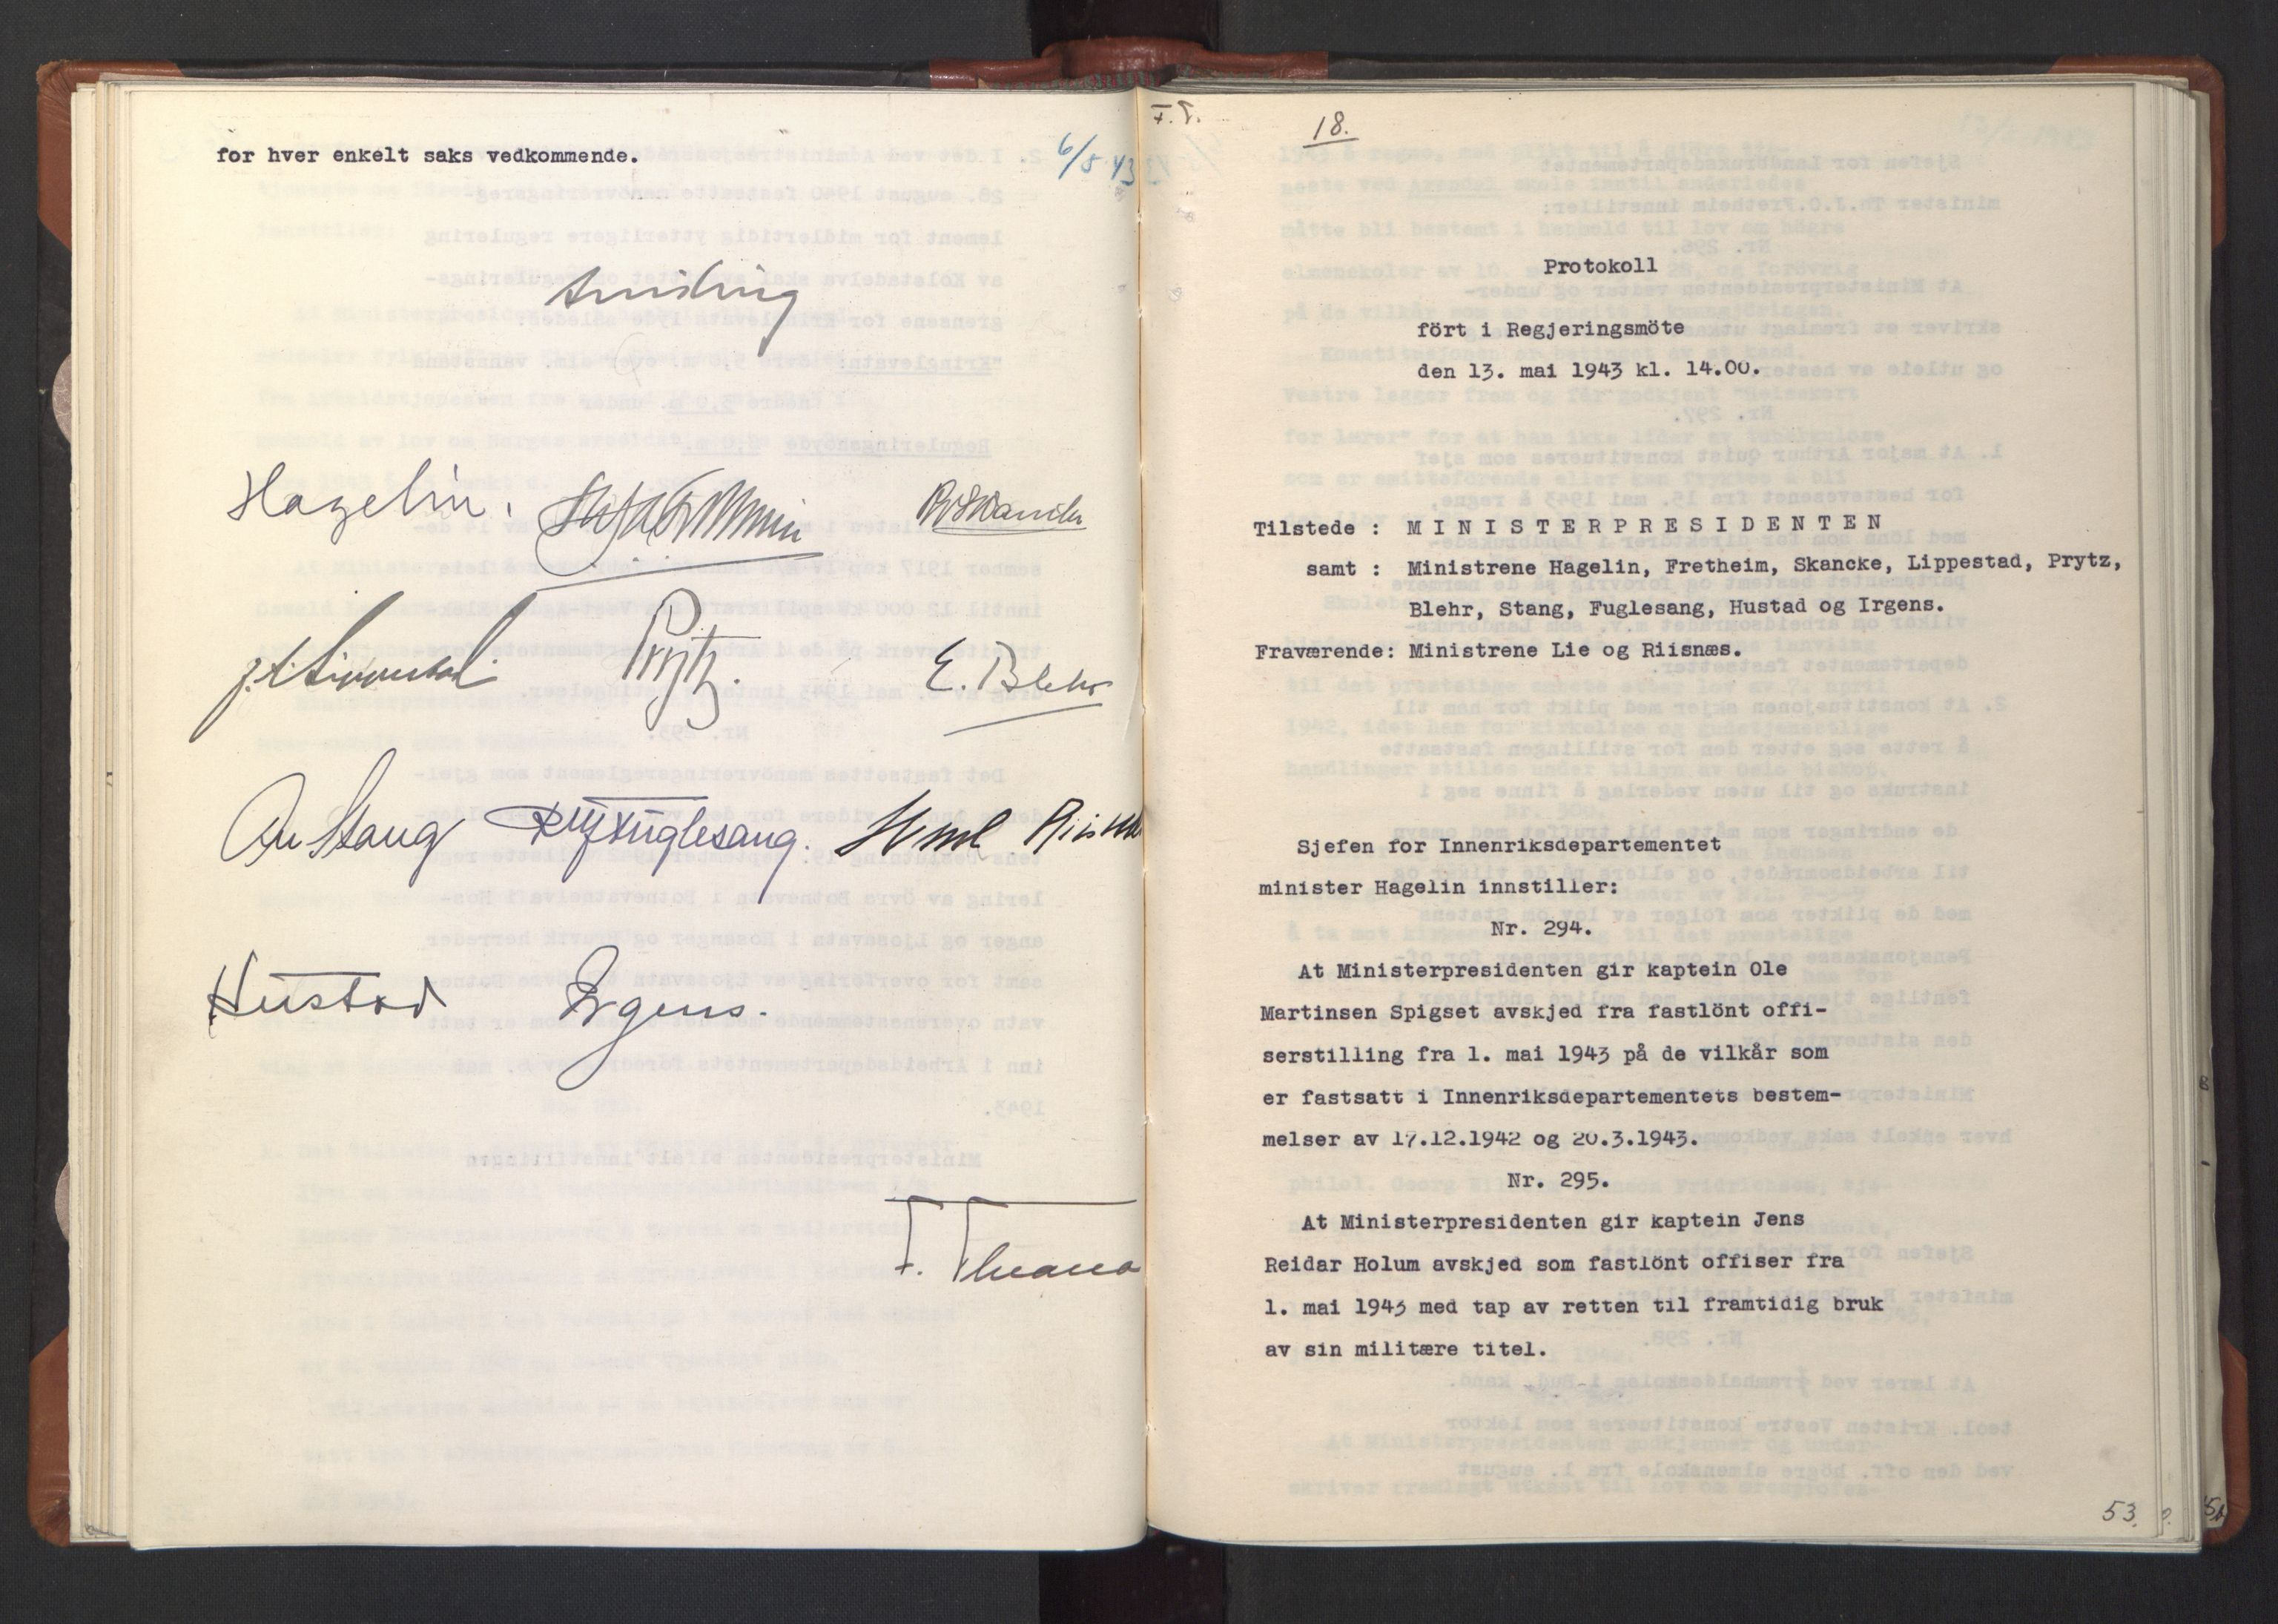 for hver enkelt saks vedkommende.
6/5 43
Quisling
Hagelin.
R Skancke
Prytz.
E. Blehr
Stang
Fuglesang.
Riisnæs
Hustad
Irgens.
18.
Protokoll
fört i Regjeringsmöte
den 13. mai 1943 kl. 14.00.
Tilstede : MINISTERPRESIDENTEN
samt : Ministrene Hagelin, Fretheim, Skancke, Lippestad, Prytz,
Blehr, Stang, Fuglesang, Hustad og Irgens.
Fraværende: Ministrene Lie og Riisnæs.
Sjefen for Innenriksdepartementet
minister Hagelin innstiller:
Nr. 294.
At Ministerpresidenten gir kaptein Ole
Martinsen Spigset avskjed fra fastlönt offi-
serstilling fra 1. mai 1943 på de vilkår som
er fastsatt i Innenriksdepartementets bestem-
melser av 17.12.1942 og 20.3.1943.
Nr. 295.
At Ministerpresidenten gir kaptein Jens
Reidar Holum avskjed som fastlönt offiser fra
1. mai 1943 med tap av retten til framtidig bruk
av sin militære titel.
53.